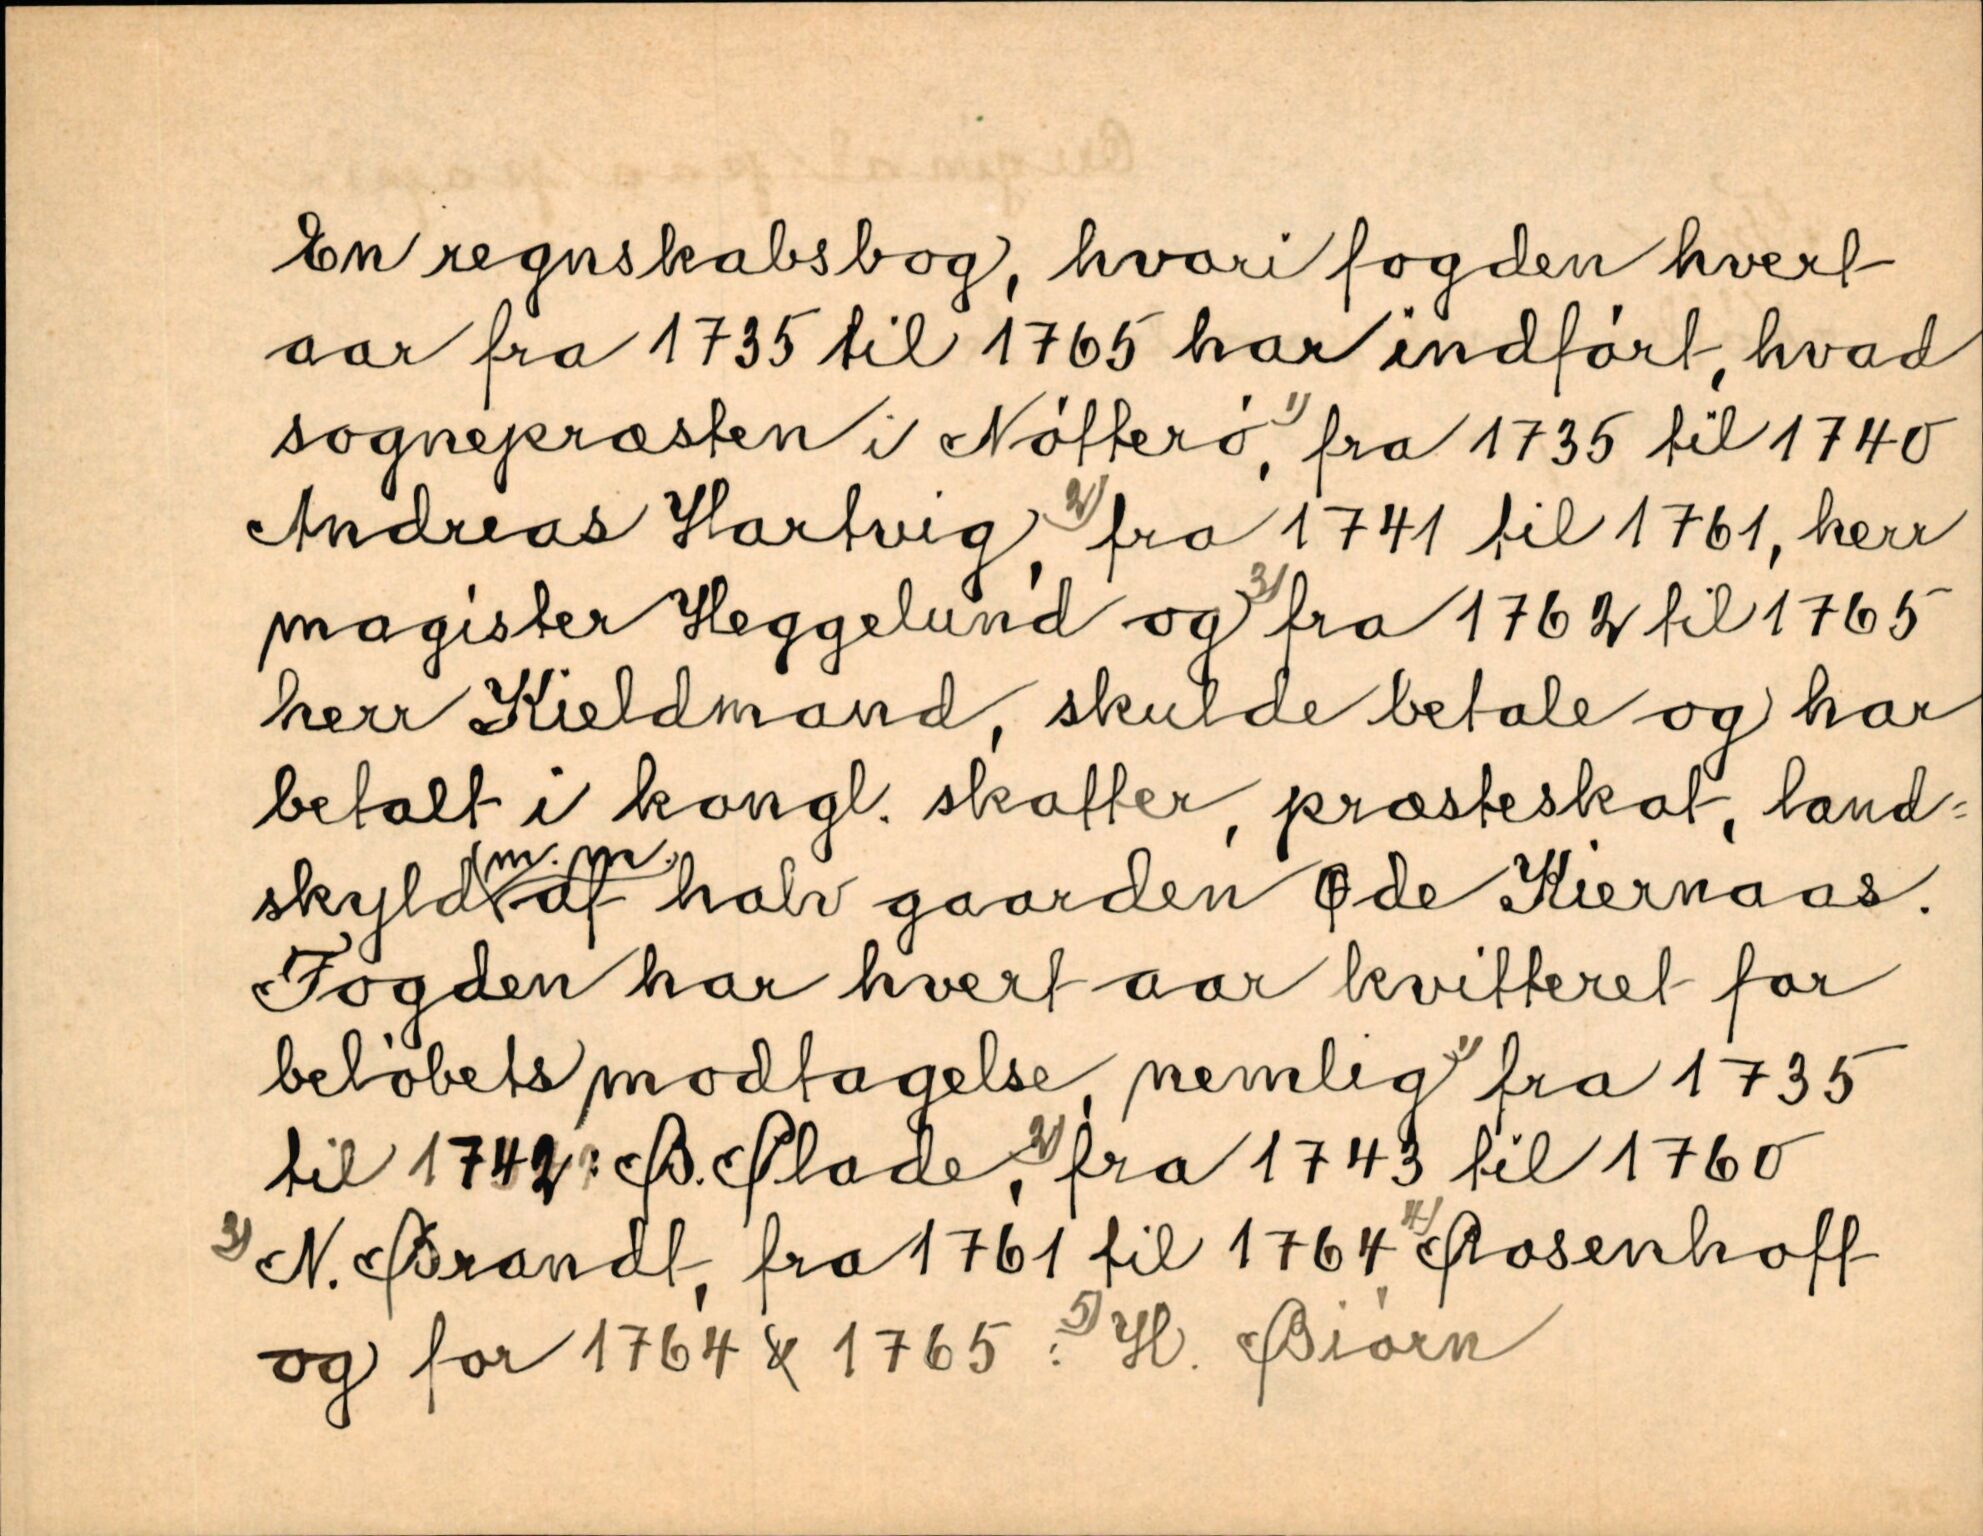 En regnskabsbog, hvori fogden hvert
aar fra 1735 til 1765 har indført, hvad
sognepræsten i Nøtterø, 1) fra 1735 til 1740
Andreas Hartvig, 2) fra 1741 til 1761, herr
magister Heggelund og 3) fra 1762 til 1765
herr Kieldmand, skulde betale og har
betalt i kongl. skatter, præsteskat, land=
skyld m. m. af halv gaarden Øde Kiernaas.
Fogden har hvert aar kvitteret for
beløbets modtagelse, nemlig 1) fra 1735
til 1742: B. Plade, 2) fra 1743 til 1760
3) N. Brandt, fra 1761 til 1764 4) Rosenhoff
og for 1764 & 1765 : 5) H. Biørn